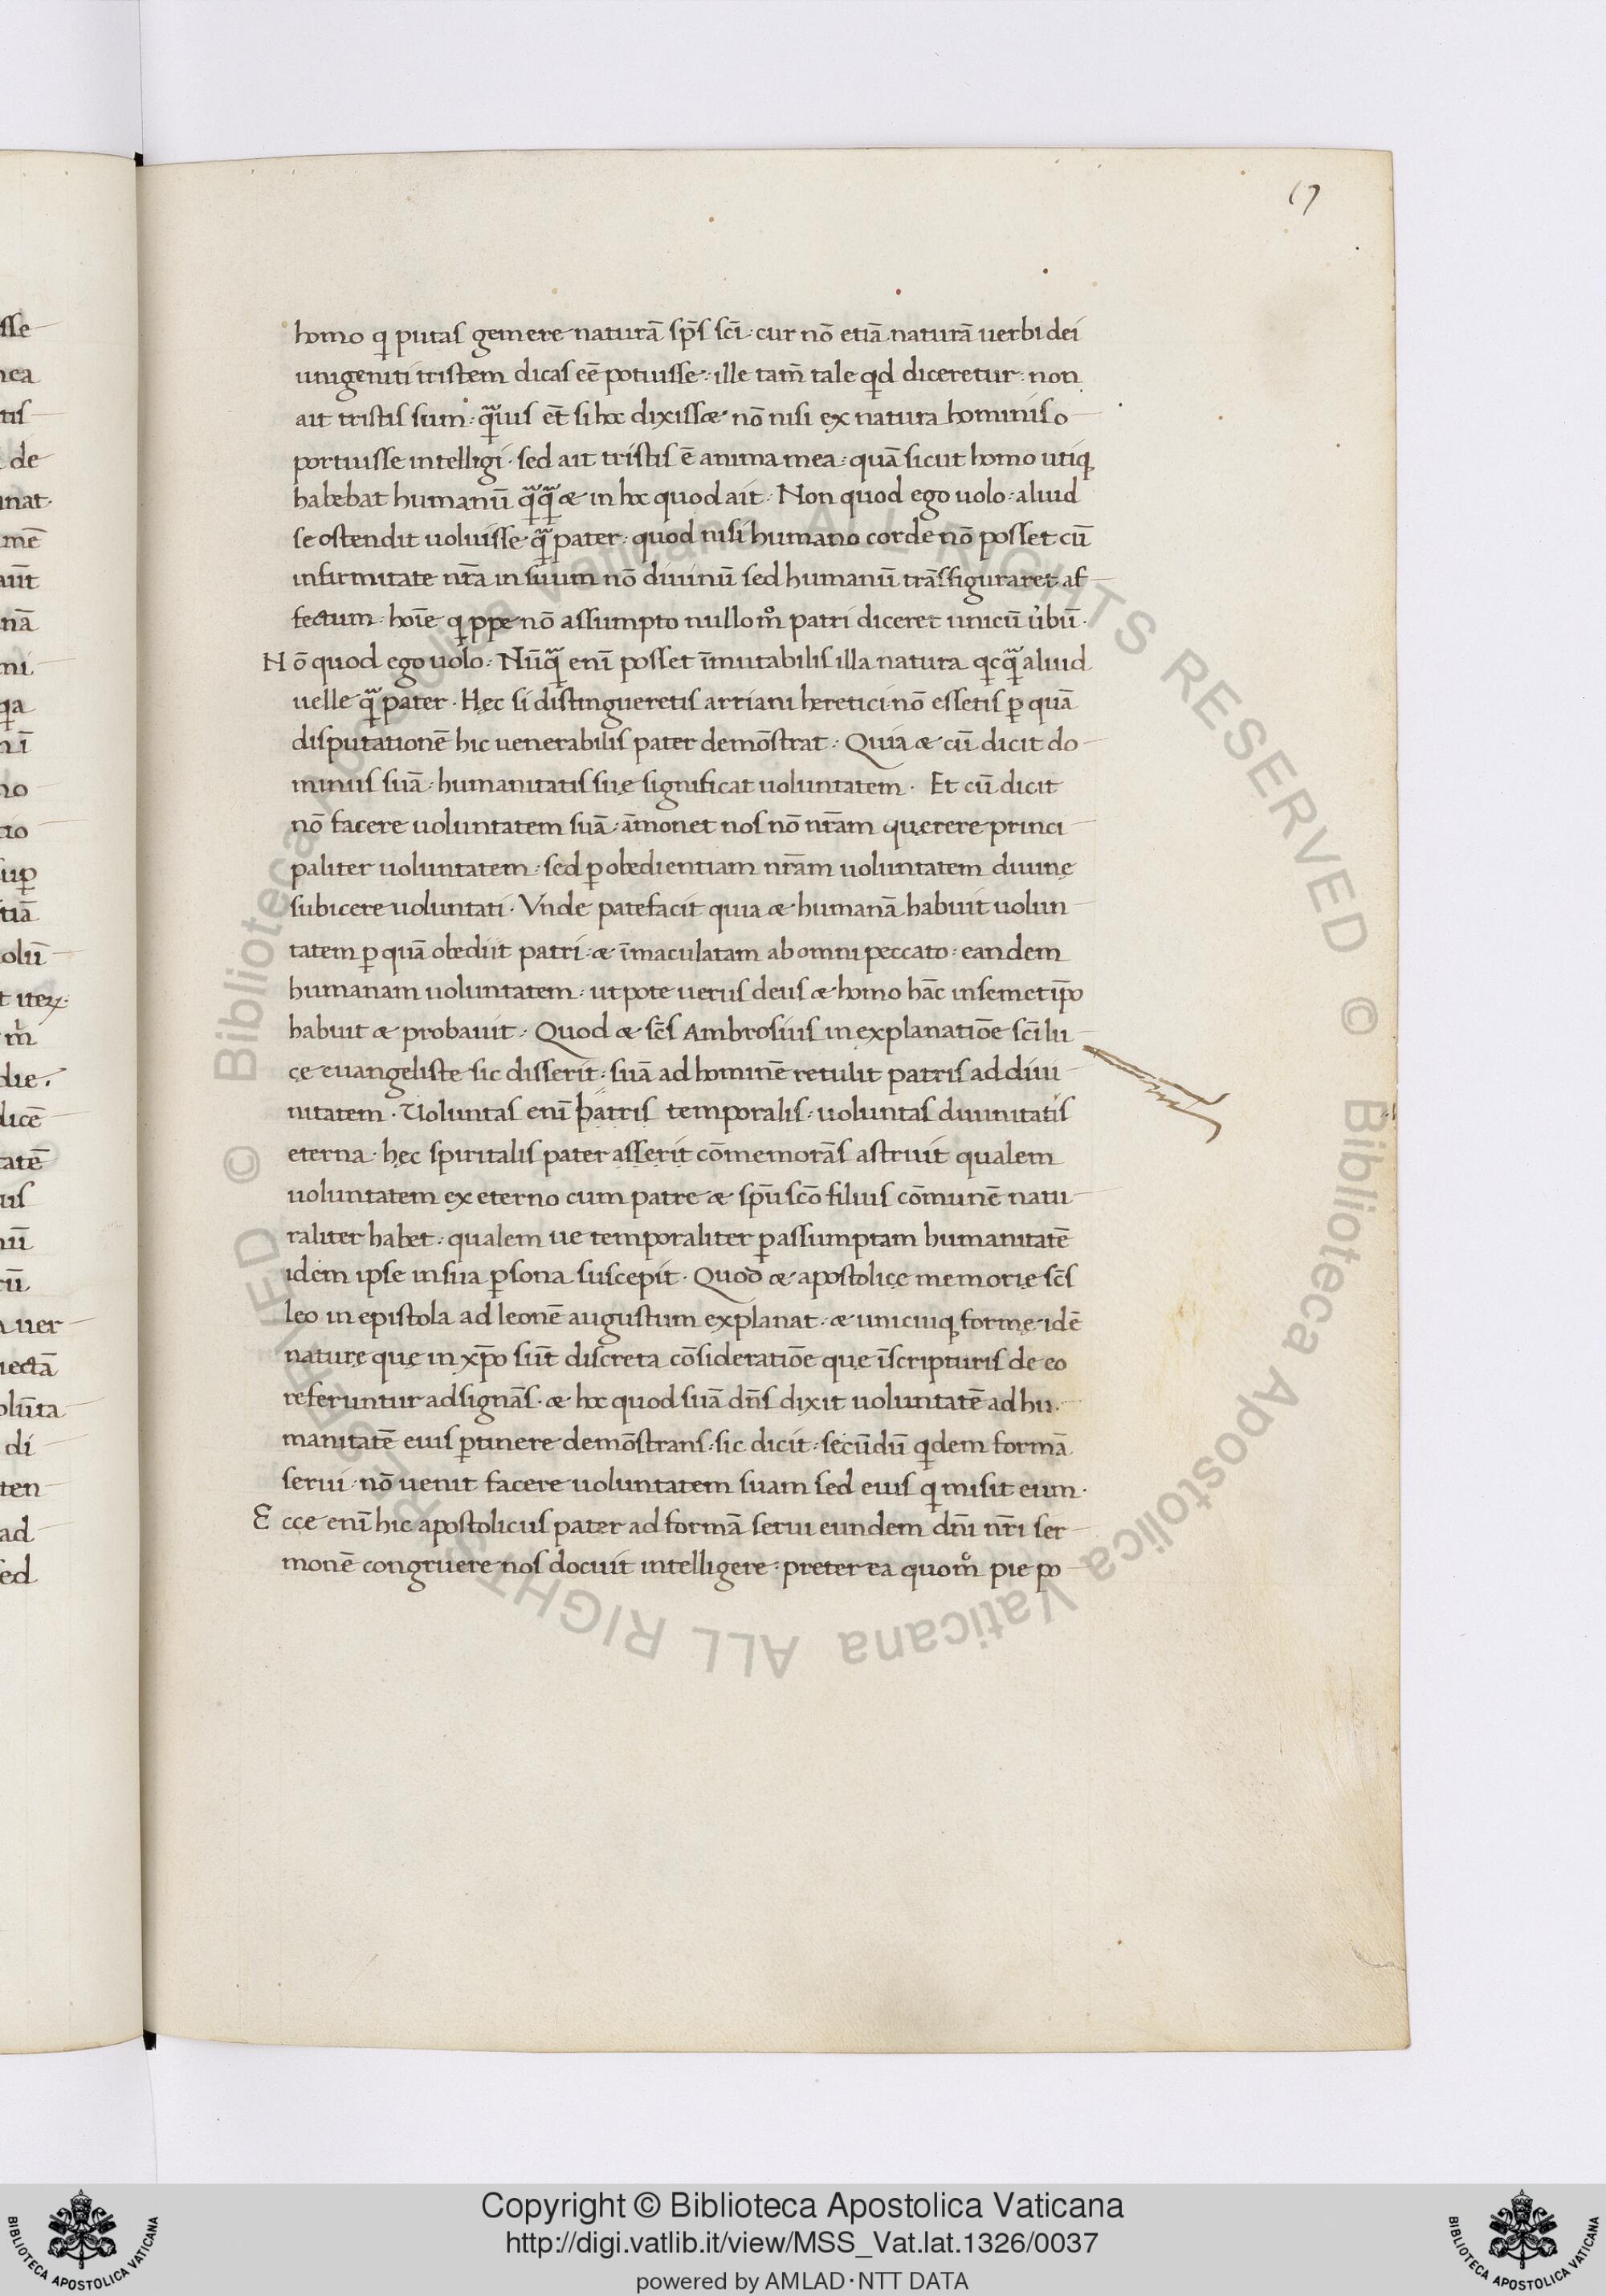 17
homo qͥ putas gemere naturā sp̄s sc̄i · cur nō etiā naturā uerbi dei
unigeniti tristem dicas eē potuisse · ille tam̄ tale qͥd diceretur · non
ait tristis sum · qͣ̄uis et̄ si hoc dixisset nō nisi ex natura hominis o
portuisse intelligi · sed ait tristis ē anima mea · quā sicut homo utiqꝫ
habebat humanū qͣ̄qͣ̄ & in hoc quod ait · Non quod ego uolo · aliud
se ostendit uoluisse qͣ̄ pater · quod nisi humano corde nō posset cū
infirmitate nr̄a in suum nō diuinū sed humanū trāsfiguraret af
fectum · hoīe qͥppe nō assumpto nullom̊ patri diceret unicū u̓bū ·
Nō quod ego uolo · Nūqͣ̄ enī posset īmutabilis illa natura qͥcqͣ̄ aliud
uelle qͣ̄ pater · Hęc si distingueretis arriani heretici nō essetis ꝑ quā
disputationē hic uenerabilis pater demōstrat · Quia & cū dicit do
minus suā · humanitatis suę significat uoluntatem · Et cū dicit
nō facere uoluntatem suā · āmonet nos nō nr̄am quęrere princi
paliter uoluntatem · sed ꝑ obedientiam nr̄am uoluntatem diuinę
subicere uoluntati · Vnde patefacit quia & humanā habuit uolun
tatem ꝑ quā obediit patri · & īmaculatam ab omni peccato · eandem
humanam uoluntatem · utpote uerus deus & homo hāc in semetip̄o
habuit & probauit · Quod & sc̄s Ambrosius in explanatiōe sc̄i lu
cę euangeliste sic disserit · suā ad hominē retulit patris ad diui
nitatem · Uoluntas enī patris temporalis · uoluntas diuinitatis
eterna · hęc spiritalis pater asserit cōmemorās astruit qualem
uoluntatem ex eterno cum patre & sp̄u sc̄o filius cōmunē natu
raliter habet · qualem ue temporaliter ꝑ assumptam humanitatē
idem ipse in sua ꝑsona suscepit · Quod & apostolicę memorię sc̄s
leo in epistola ad leonē augustum explanat · & unicuiqꝫ formę idē
naturę quę in xp̄o sūt discreta cōsideratiōe que īscripturis de eo
referuntur adsignās · & hoc quod suā dn̄s dixit uoluntatē ad hu
manitatē eius ꝑtinere demōstrans · sic dicit · secūdū qͥdem formā
serui · nō uenit facere uoluntatem suam sed eius qͥ misit eum ·
Ecce enī hic apostolicus pater ad formā serui eundem dn̄i nr̄i ser
monē congruere nos docuit intelligere · preterea quom̊ pie po
Copyright © Biblioteca Apostolica Vaticana
http://digi.vatlib.it/view/MSS_Vat.lat.1326/0037
powered by AMLAD·NTT DATA